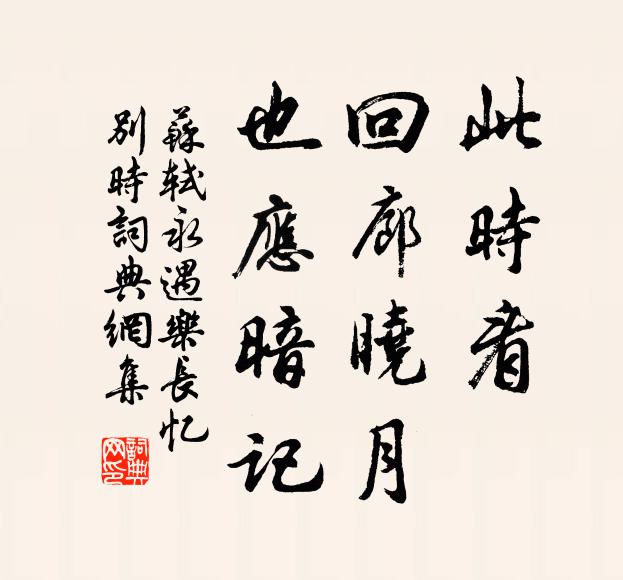 此時看
回廊曉月
也應暗記
蘇軾永遇樂長忆
別時詞典網集
詞典
网印